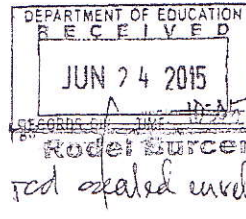 DEPARTMENT OF EDUCATION
RECEIVED
JUN 24 2015
RECORDS
TIME
BY
Rodel Burce
rcd sealed